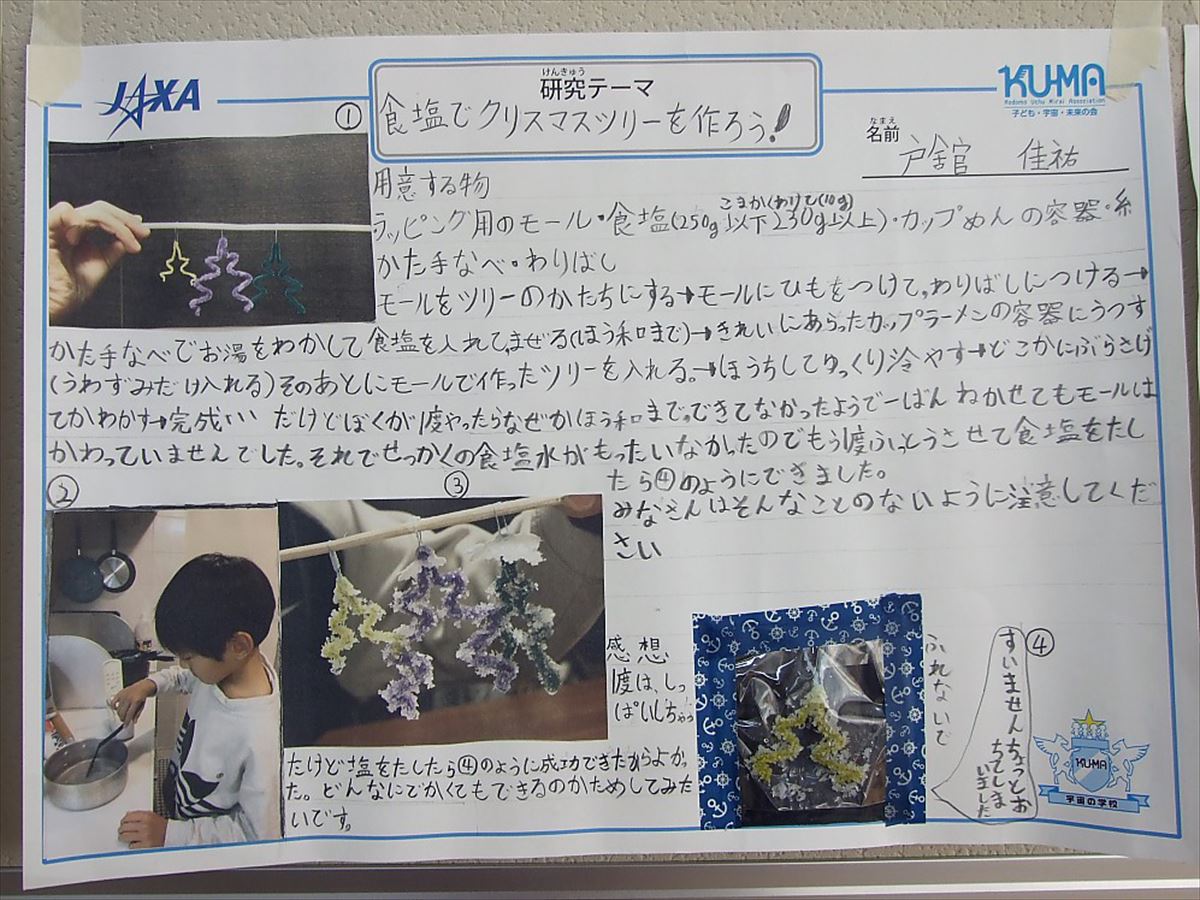 JAXA
けんきゅう
研究テーマ
食塩でクリスマスツリーを作ろう!
KU-MA
Kodomo Uchu Mirai Association
子ども・宇宙・未来の会
なまえ
名前
戸舘 佳祐
①
用意する物
こまかくわけて(10g)
ラッピング用のモール・食塩(250g以下230g以上)・カップめんの容器・糸
かた手なべ・わりばし
モールをツリーのかたちにする→モールにひもをつけて、わりばしにつける→
かた手なべでお湯をわかして食塩を入れて、まぜる(ほう和まで)→きれいにあらったカップラーメンの容器にうつす
(うわずみだけ入れる)そのあとにモールで作ったツリーを入れる。→ほうちしてゆっくり冷やす→どこかにぶらさげ
てかわかす→完成 だけどぼくが1度やったらなぜかほう和まで、できてなかったようで一ばんねかせてもモールは
かわっていませんでした。それでせっかくの食塩水がもったいなかったのでもう1度ふっとうさせて食塩をたし
たら④のようにできました。
みなさんはそんなことのないように注意してくだ
さい
②
③
感想
1度は、しっ
ぱいしちゃっ
たけど塩をたしたら④のように成功できたからよかっ
た。どんなにでかくてもできるのかためしてみた
いです。
ふれないで
すいませんちょっとお
ちてしま
いました
④
KU-MA
宇宙の学校